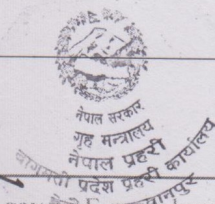 नेपाल सरकार
गृह मन्त्रालय
नेपाल प्रहरी
बागमती प्रदेश प्रहरी कार्यालय